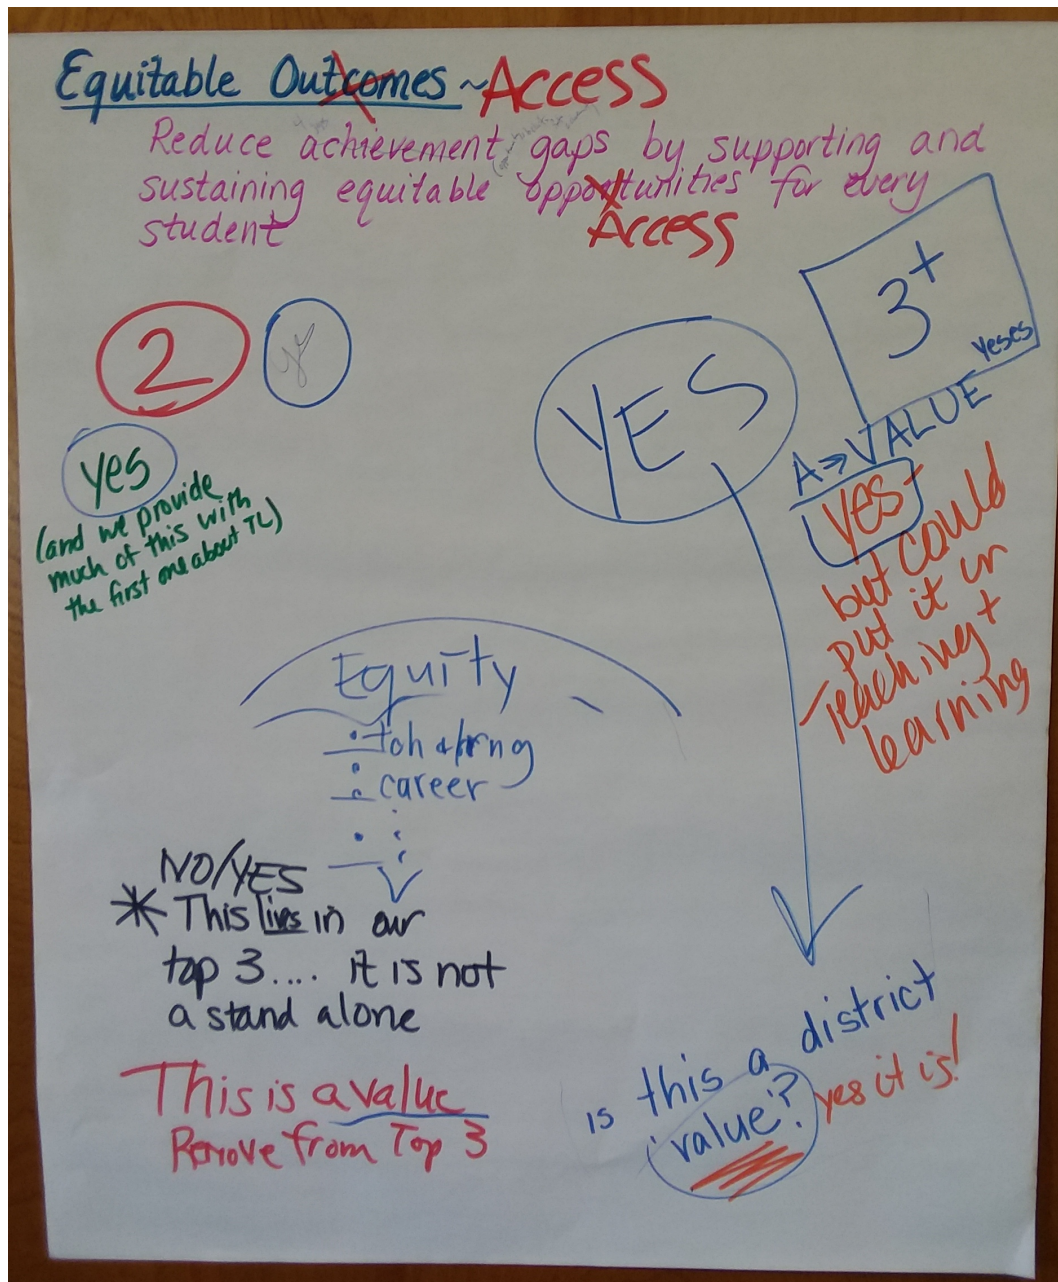 Equitable Outcomes ~ Access
Reduce achievement gaps by supporting and
sustaining equitable opportunities for every
student
Access
3+
yeses
2
yes
YES
A => VALUE
yes
(and we provide
much of this with
the first one about TL)
yes-
but could
put it in
Teaching +
learning
Equity
tch & lrng
career
NO/YES
* This lives in our
top 3.... it is not
a stand alone
This is a value
Remove from Top 3
is this a district
'value'? yes it is!